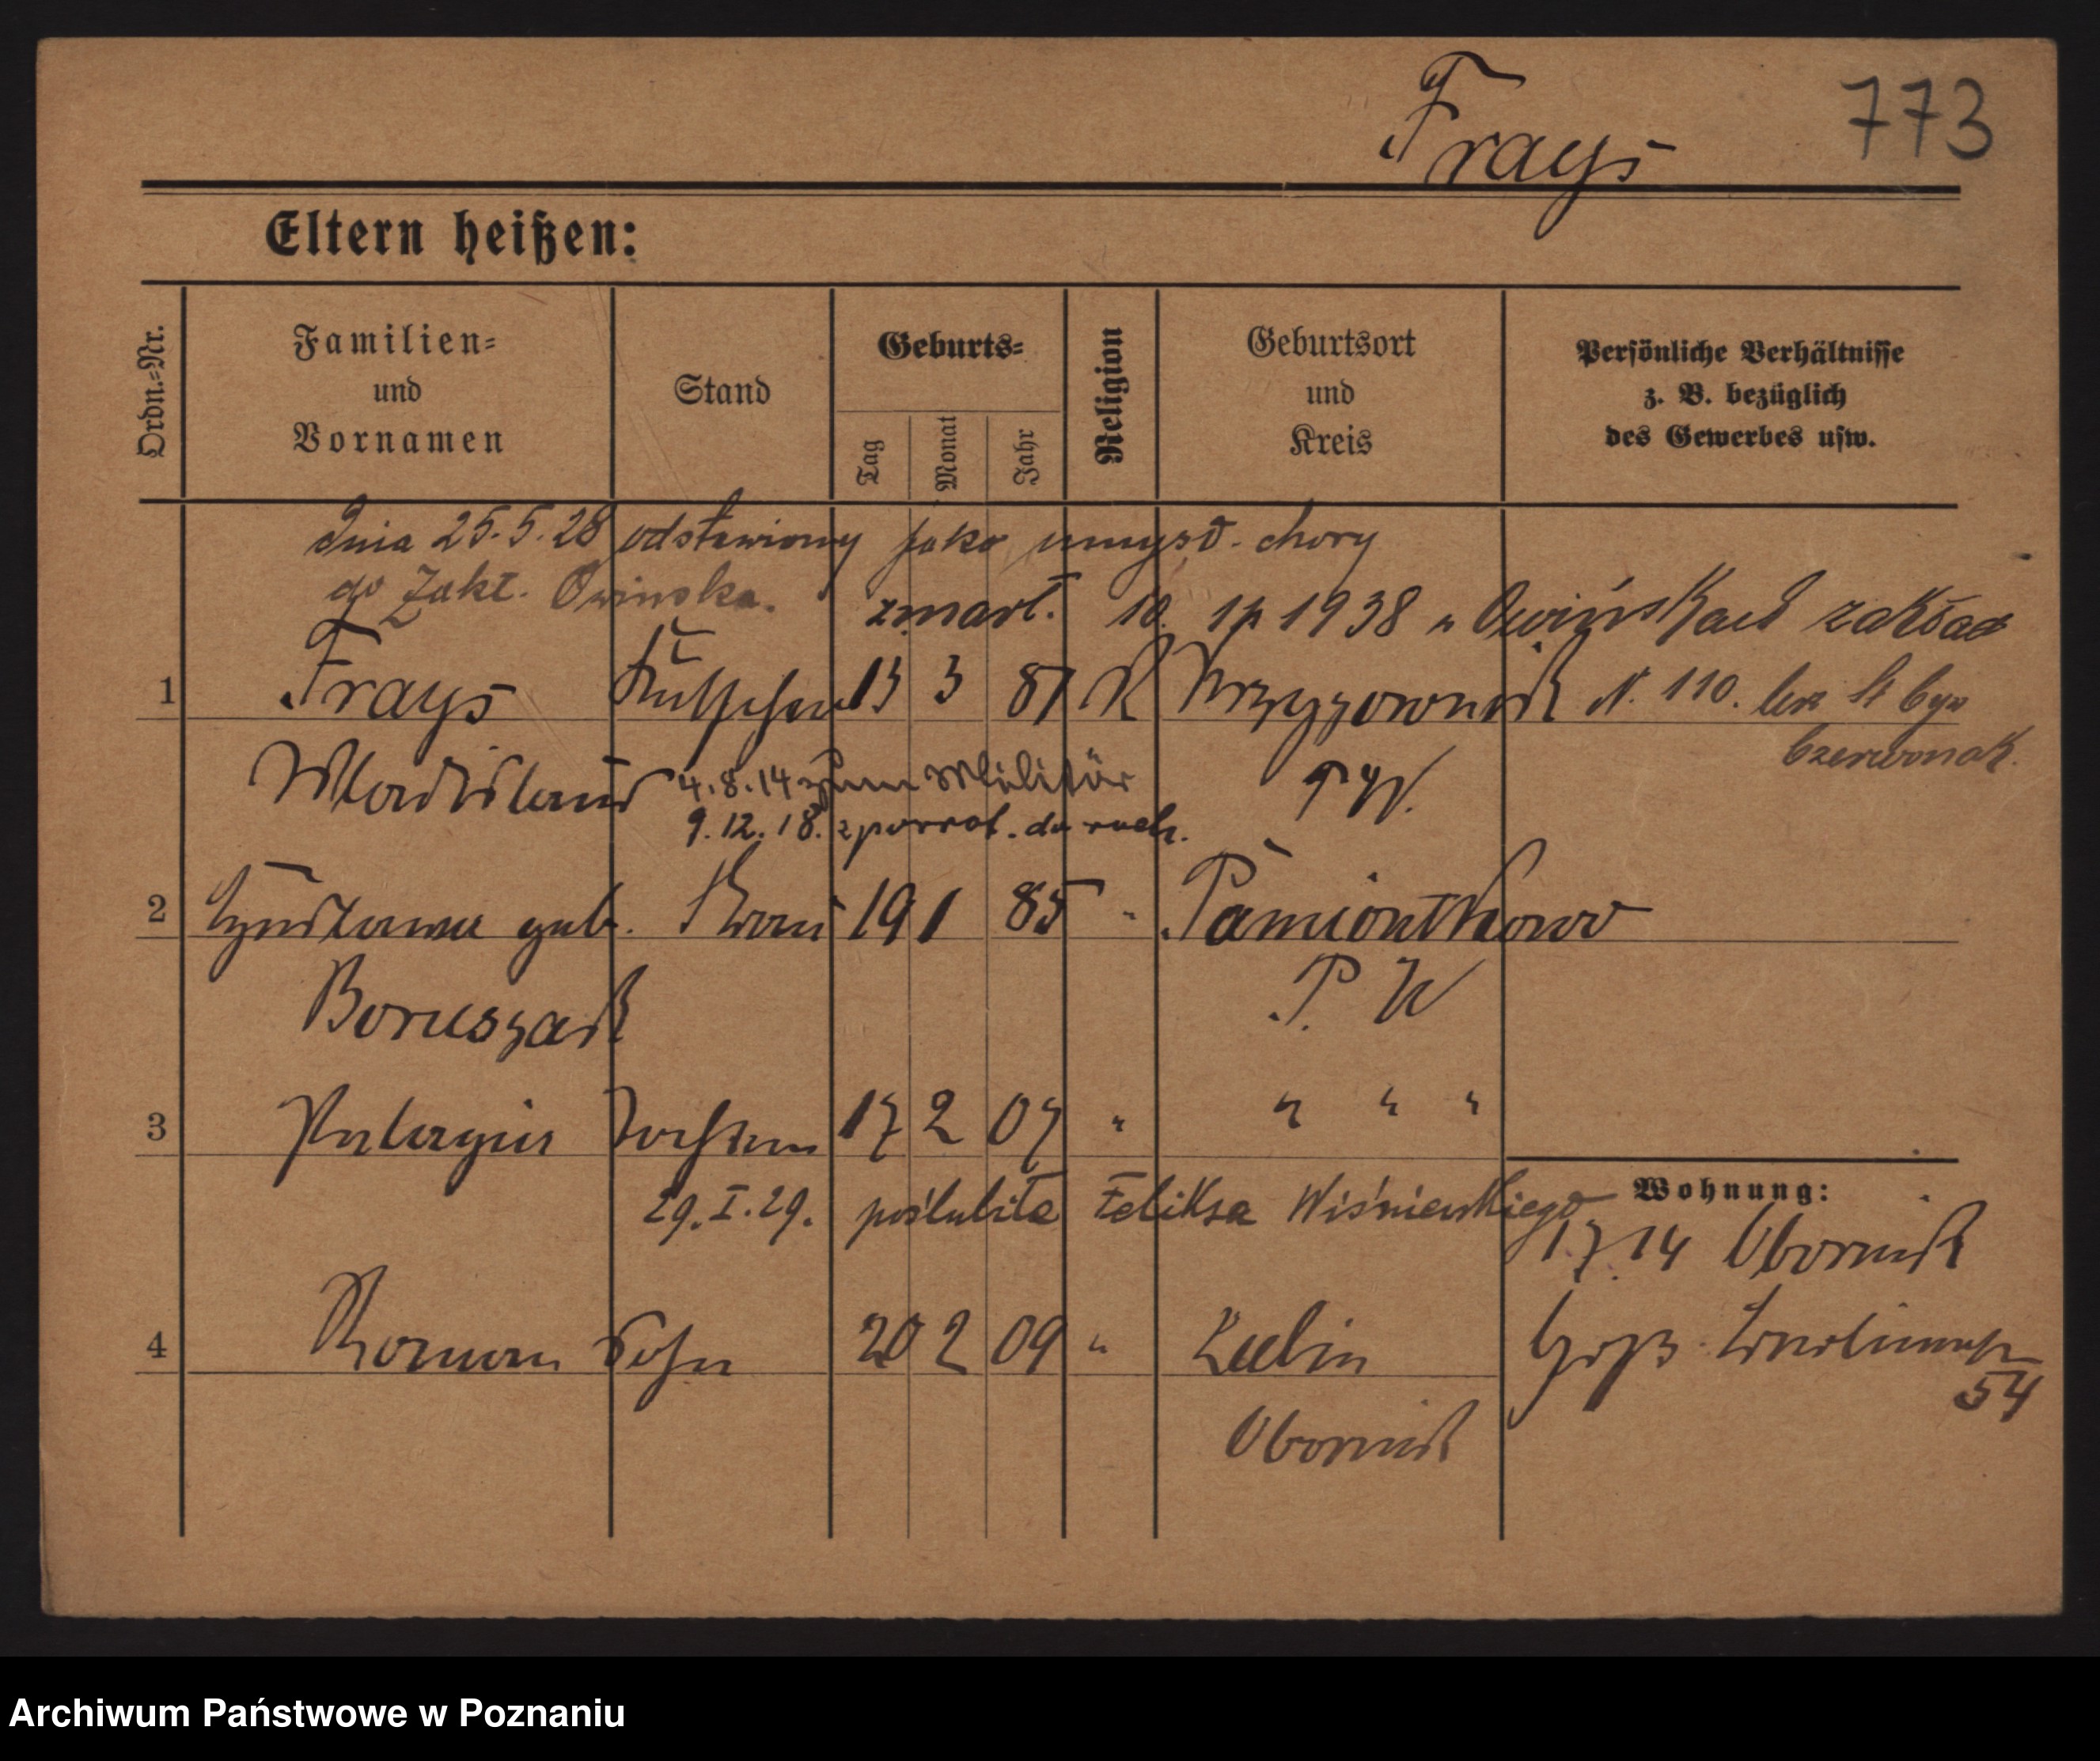 773
Frays
Eltern heißen:
Ordn.=Nr.
Familien=
und
Vornamen
Stand
Geburts=
Tag
Monat
Jahr
Religion
Geburtsort
und
Kreis
Persönliche Verhältnisse
z. B. bezüglich
des Gewerbes usw.
dnia 25.5.28 odstawiony jako umysł. chory
do Zakł. Owinska.
zmarł. 10. 1938 w Owińskach zakład
1 Frays 13 3 87 K N. 110.
Czerwonak.
Wladislaus 4.8.14 zum Militär P W.
9.12.18. z powrot. do
2 geb. Frau 19 1 85 " Pamiontkowo
Boruszak P. W
3 Pelagia Tochter 17 2 07 " " " "
Wohnung:
29. I. 29. poślubiła Feliksa Wiśniewskiego
14 Obornik
4 Roman Sohn 20 2 09 " Lulin
54
Obornik
Archiwum Państwowe w Poznaniu